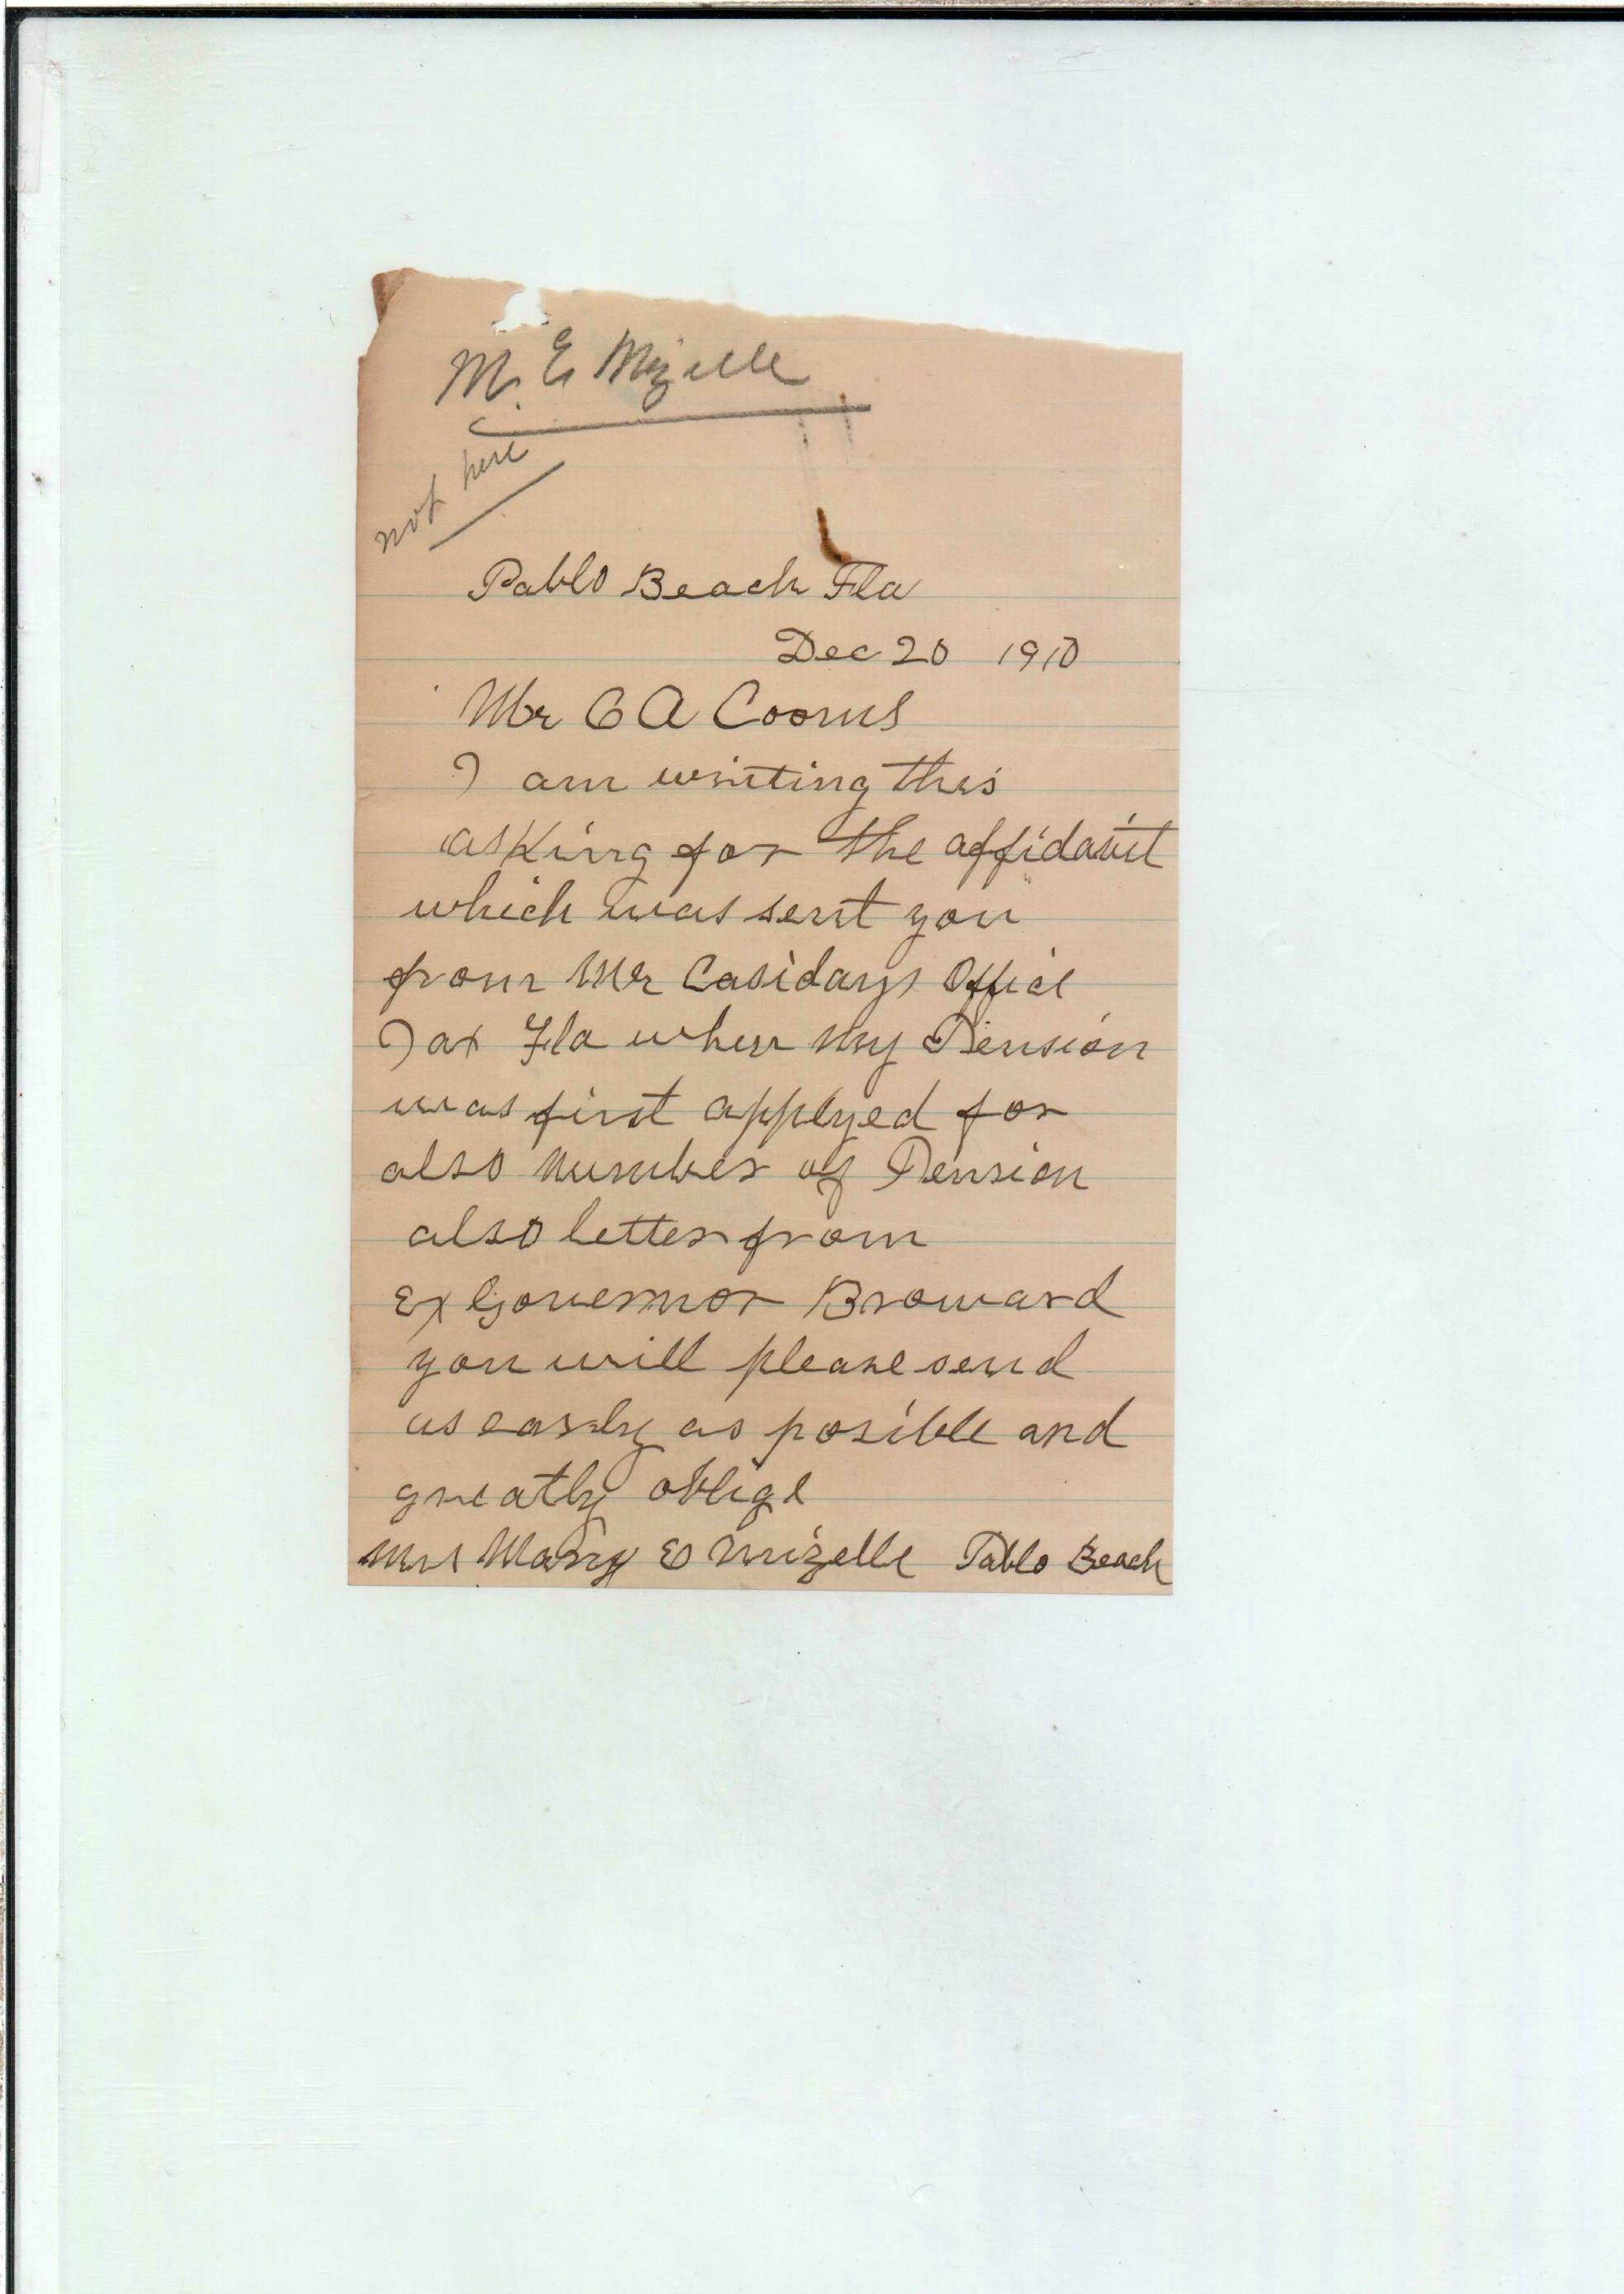 M. E Mizelle
not here
Pablo Beach Fla
Dec 20 1910
Mr C A Cooms
I am writing this
asking for the affidavit
which was sent you
from Mr Casidays Office
Jax Fla when my Pension
was first applyed for
also number of Pension
also letter from
Ex Governor Broward
you will please send
as early as posible and
greatly oblige
Mrs Mary E Mizelle Pablo Beach